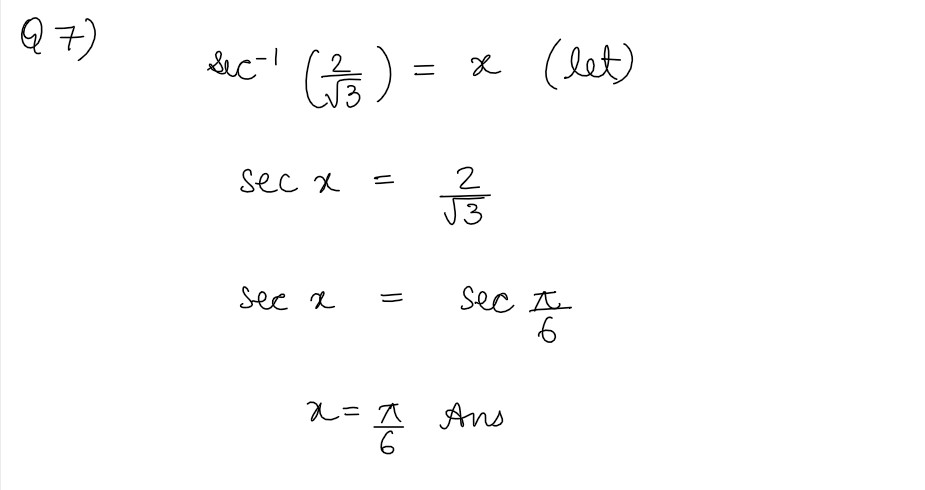 Q 7)
sec⁻¹ (2/√3) = x (let)
sec x = 2/√3
sec x = sec π/6
x = π/6 Ans